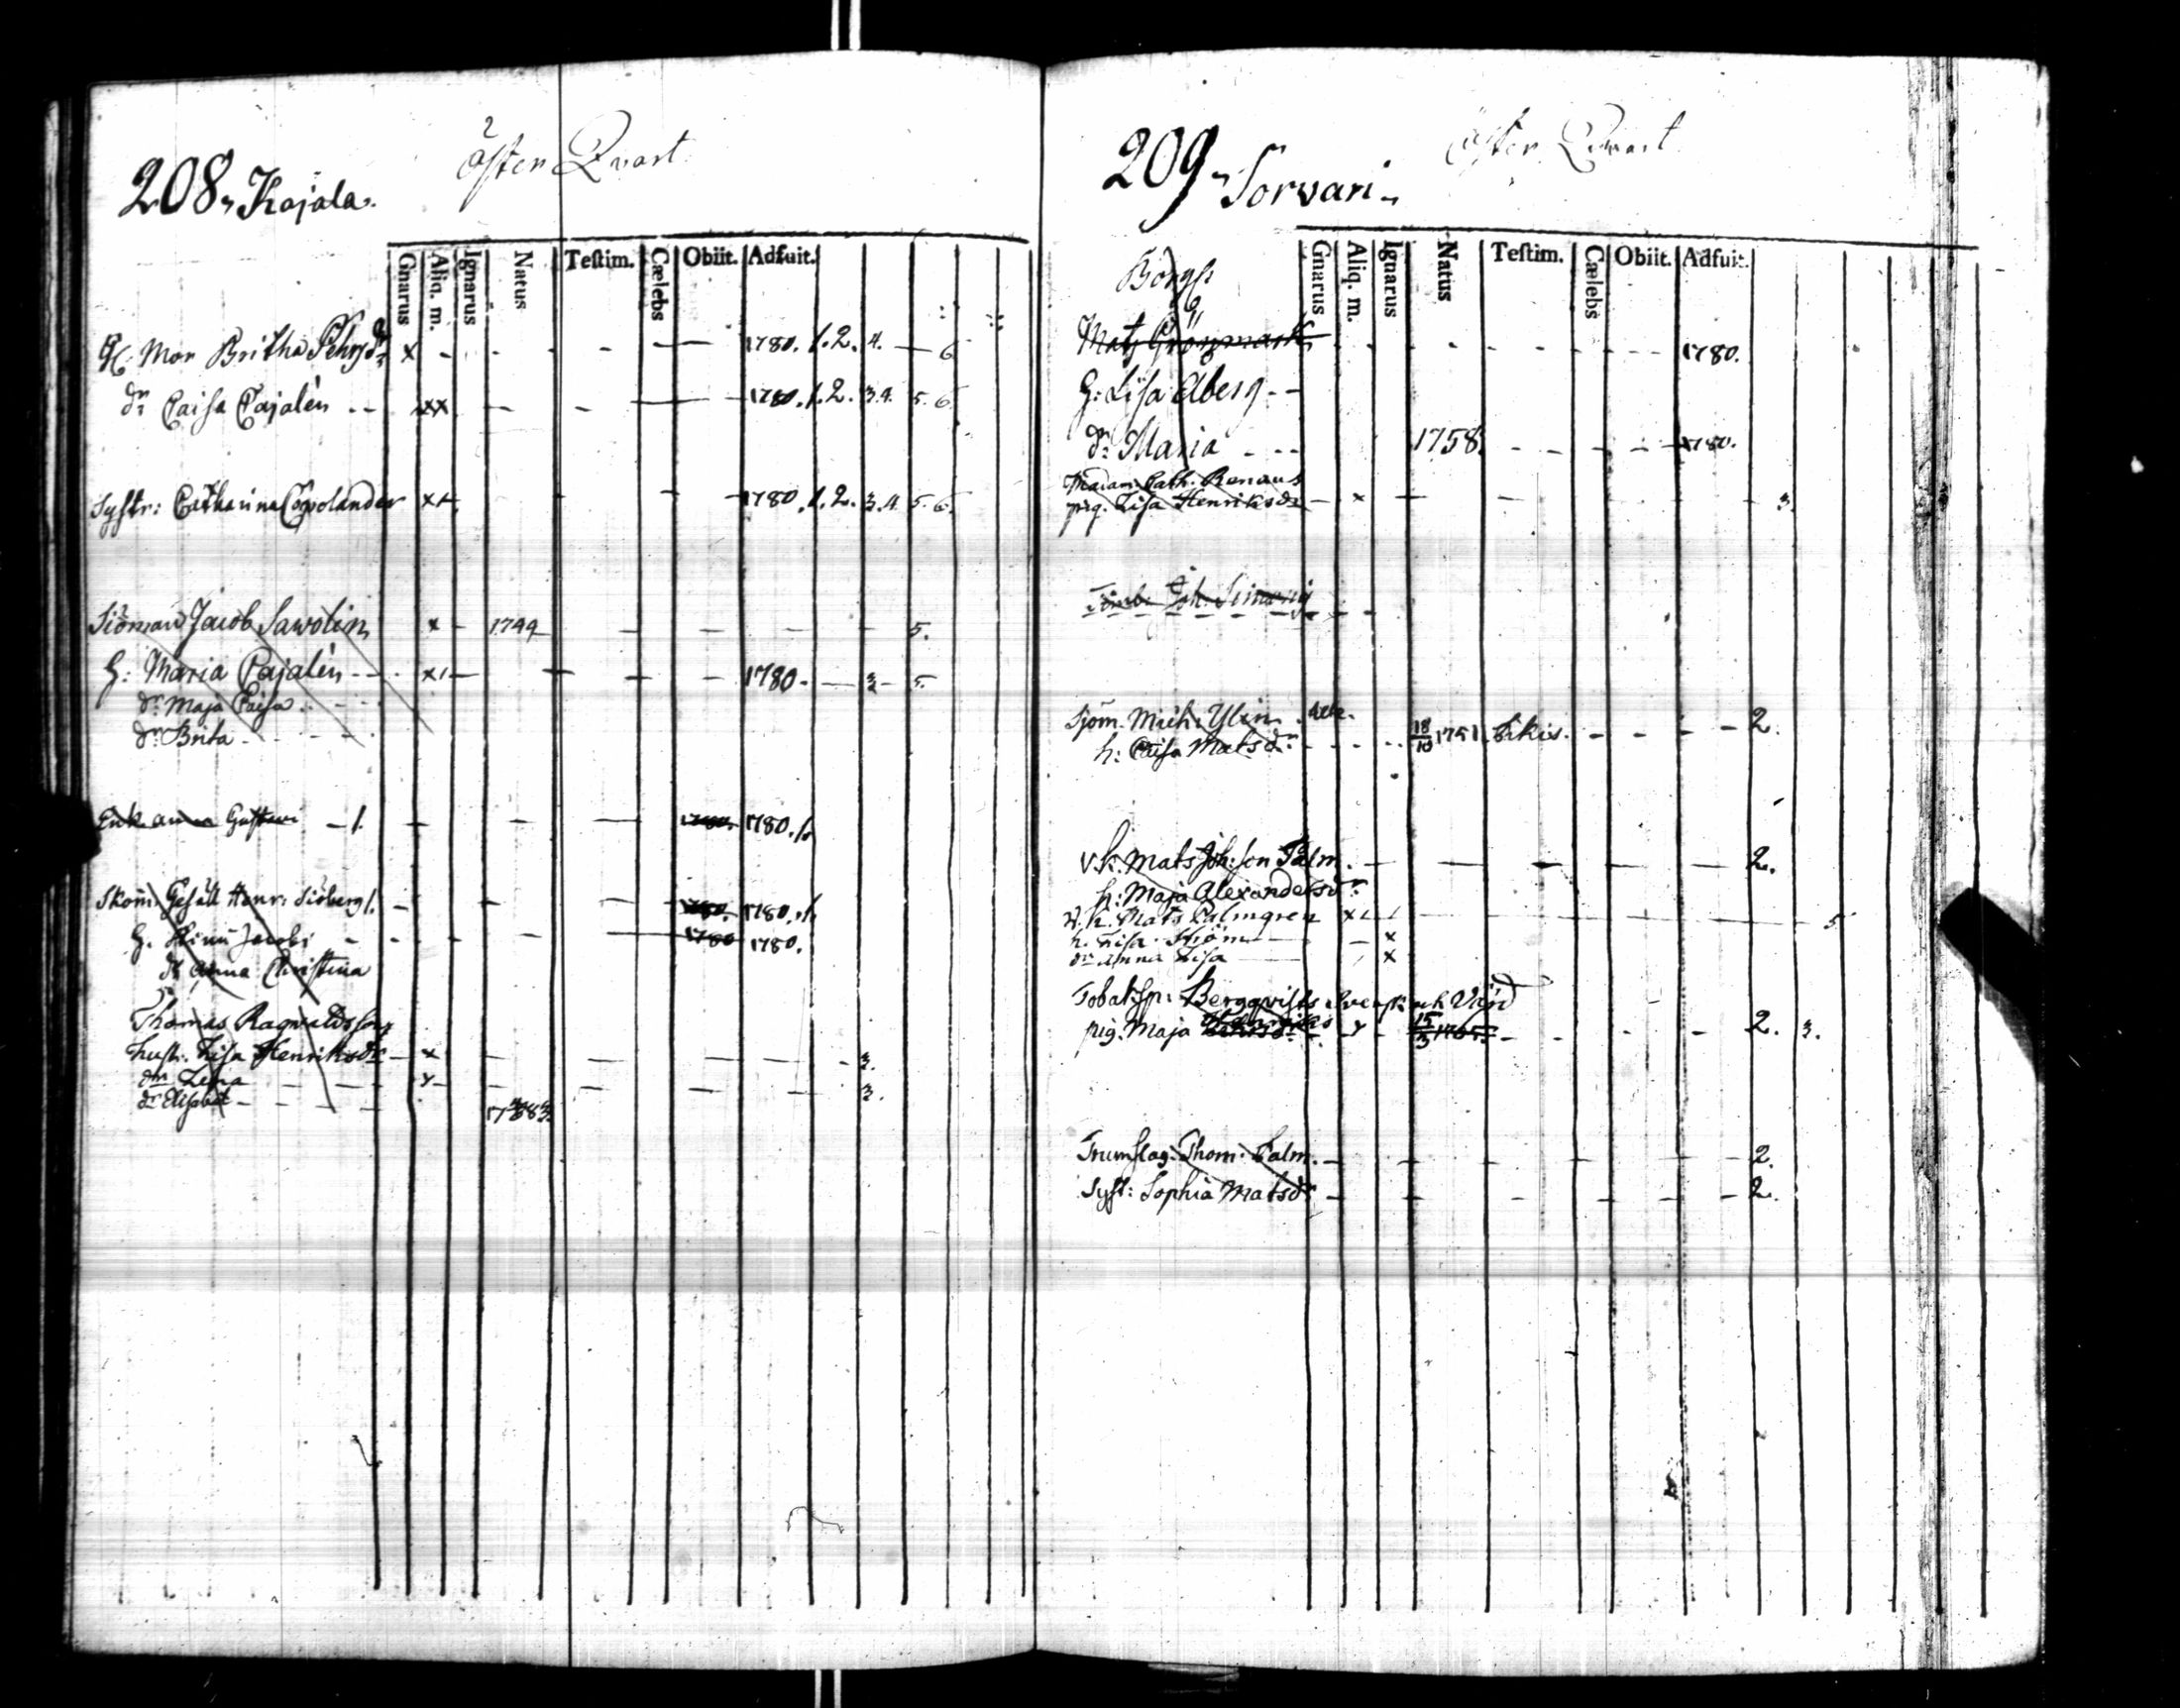 208, Kajala.
Öster Qvart
Gnarus Aliq. m. Ignarus Natus Testim. Cælebs Obiit. Adfuit.
Mor Britha Pehrsdr x - - - - — 1780. 1. 2. 4. — 6
dr Caisa Cajalén -- xx — - — 1780. 1. 2. 3.4. 5. 6
Systr: Catharina Copolander xx 1780. 1. 2. 3.4. 5. 6.
Siöman Jacob Sawolin x - 1744 — — — — 5.
H: Maria Cajalén - - - x1 — 1780 - — 3 - 5.
dr Maja Caisa - - -
dr Brita - - - - -
Enk anna Gustavi - 1. 1780. 1780. 1.
Skom. Gesäll Henr: Siöberg 1. - 1780. 1780. 1.
H. Jacobi - - - 1780 1780.
dr Anna Christina
Thomas Ragwaldsson
hustr. Lisa Henriksdr — x - - - - - 3.
dr Lena - - - x -
dr Elisabet - - - - - - 3.
209, Sorvari.
Öster Qwart
Gnarus Aliq. m. Ignarus Natus Testim. Cælebs Obiit. Adfuit.
Borgs:
Matz Grönmark - - - - - 1780.
H: Lisa Aberg - -
dr Maria - - - 1758. - - - - 1780.
Madam Cath. Renaus
pig. Lisa Henriksdr — x — - - - 3.
Joh:
Sjöm. Mich: Ylin
h: Caisa Matsdr - - - - 18/10 1751. - - - - 2.
v.k. Mats Joh:son Palm. — — - — — 2.
h: Maja Alexandersdr
v. k. Mats Palmgren x1 1 5
h. Lisa Ström — — x
dr Anna Lisa — x
Tobak:Sp: Bergqvists
pig. Maja - - - - - 2. 3.
Trumslag. Thom: Palm. — - - - - - 2.
Syst: Sophia Matsdr - - - - - - 2.